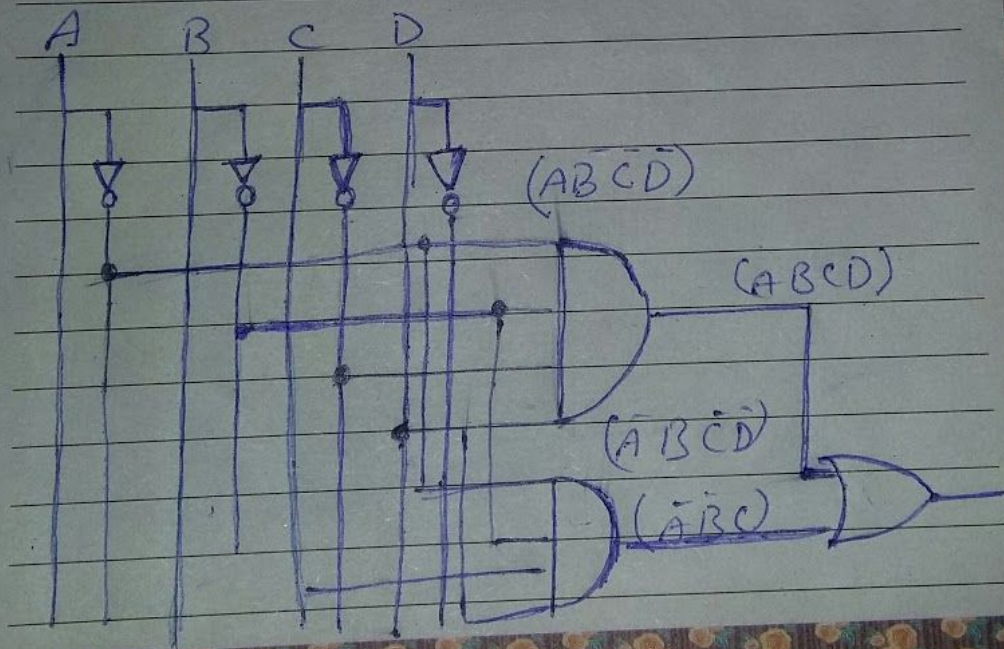 A B C D
(AB̅C̅D̅)
(ABCD)
(A̅BC̅D̅)
(A̅B̅C)